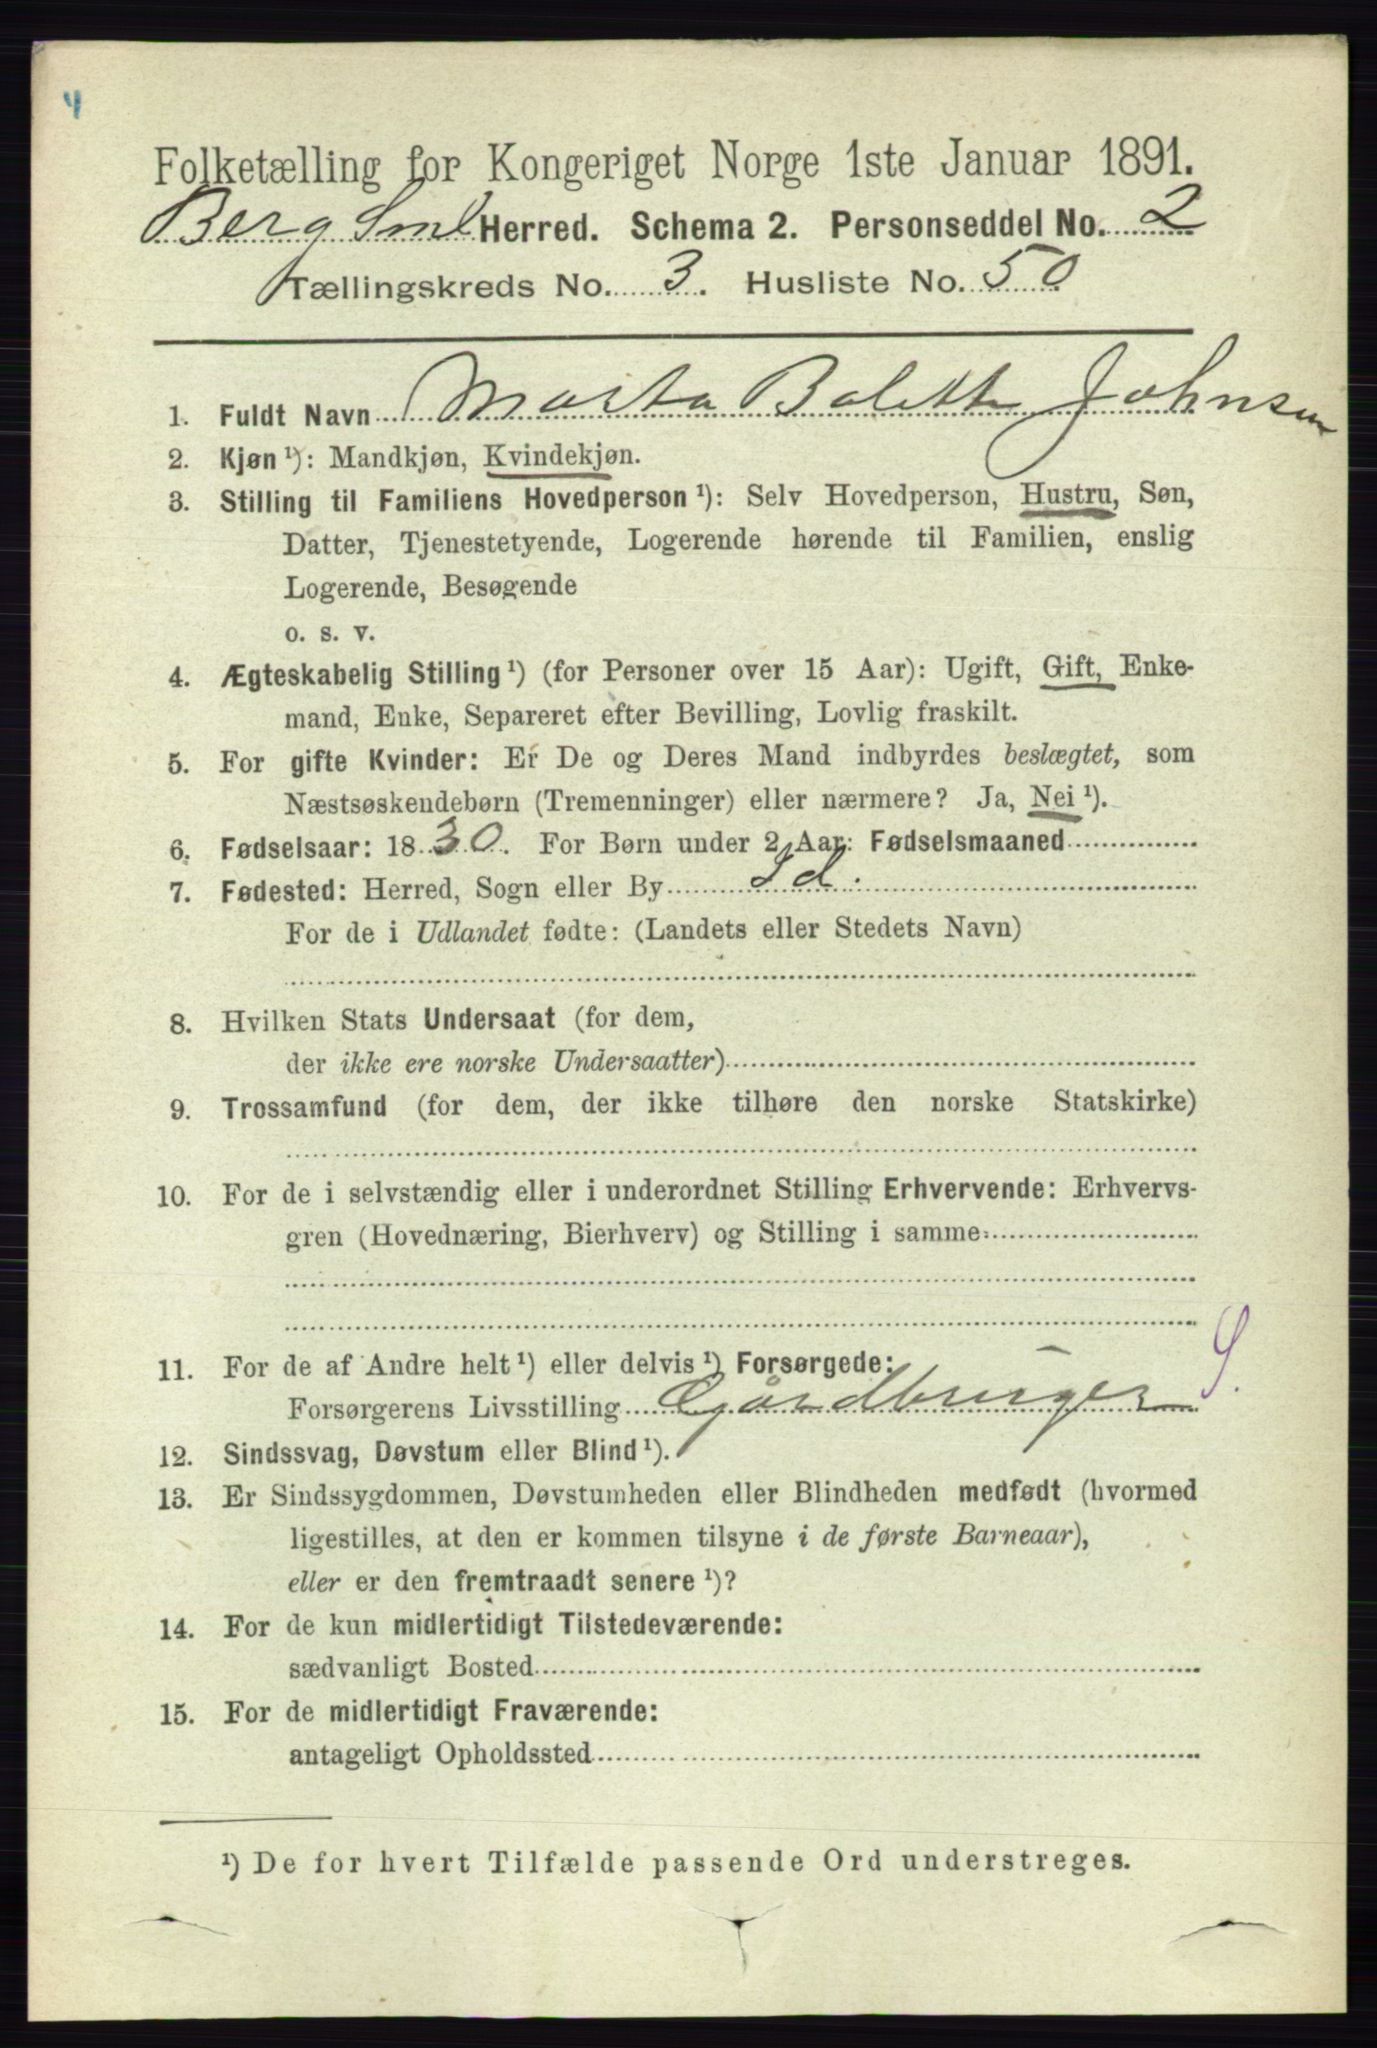 4
Folketælling for Kongeriget Norge 1ste Januar 1891.
Berg Sml Herred. Schema 2. Personseddel No. 2
Tællingskreds No. 3. Husliste No. 50
1. Fuldt Navn Marta Bolette Johnsen
2. Kjøn ¹): Mandkjøn, Kvindekjøn.
3. Stilling til Familiens Hovedperson ¹): Selv Hovedperson, Hustru, Søn,
Datter, Tjenestetyende, Logerende hørende til Familien, enslig
Logerende, Besøgende
o. s. v.
4. Ægteskabelig Stilling ¹) (for Personer over 15 Aar): Ugift, Gift, Enke-
mand, Enke, Separeret efter Bevilling, Lovlig fraskilt.
5. For gifte Kvinder: Er De og Deres Mand indbyrdes beslægtet, som
Næstsøskendebørn (Tremenninger) eller nærmere? Ja, Nei ¹).
6. Fødselsaar: 1830. For Børn under 2 Aar: Fødselsmaaned
7. Fødested: Herred, Sogn eller By Id.
For de i Udlandet fødte: (Landets eller Stedets Navn)
8. Hvilken Stats Undersaat (for dem,
der ikke ere norske Undersaatter)
9. Trossamfund (for dem, der ikke tilhøre den norske Statskirke)
10. For de i selvstændig eller i underordnet Stilling Erhvervende: Erhvervs-
gren (Hovednæring, Bierhverv) og Stilling i samme:
11. For de af Andre helt ¹) eller delvis ¹) Forsørgede:
Forsørgerens Livsstilling Gårdbruger S.
12. Sindssvag, Døvstum eller Blind ¹).
13. Er Sindssygdommen, Døvstumheden eller Blindheden medfødt (hvormed
ligestilles, at den er kommen tilsyne i de første Barneaar),
eller er den fremtraadt senere ¹)?
14. For de kun midlertidigt Tilstedeværende:
sædvanligt Bosted
15. For de midlertidigt Fraværende:
antageligt Opholdssted
¹) De for hvert Tilfælde passende Ord understreges.